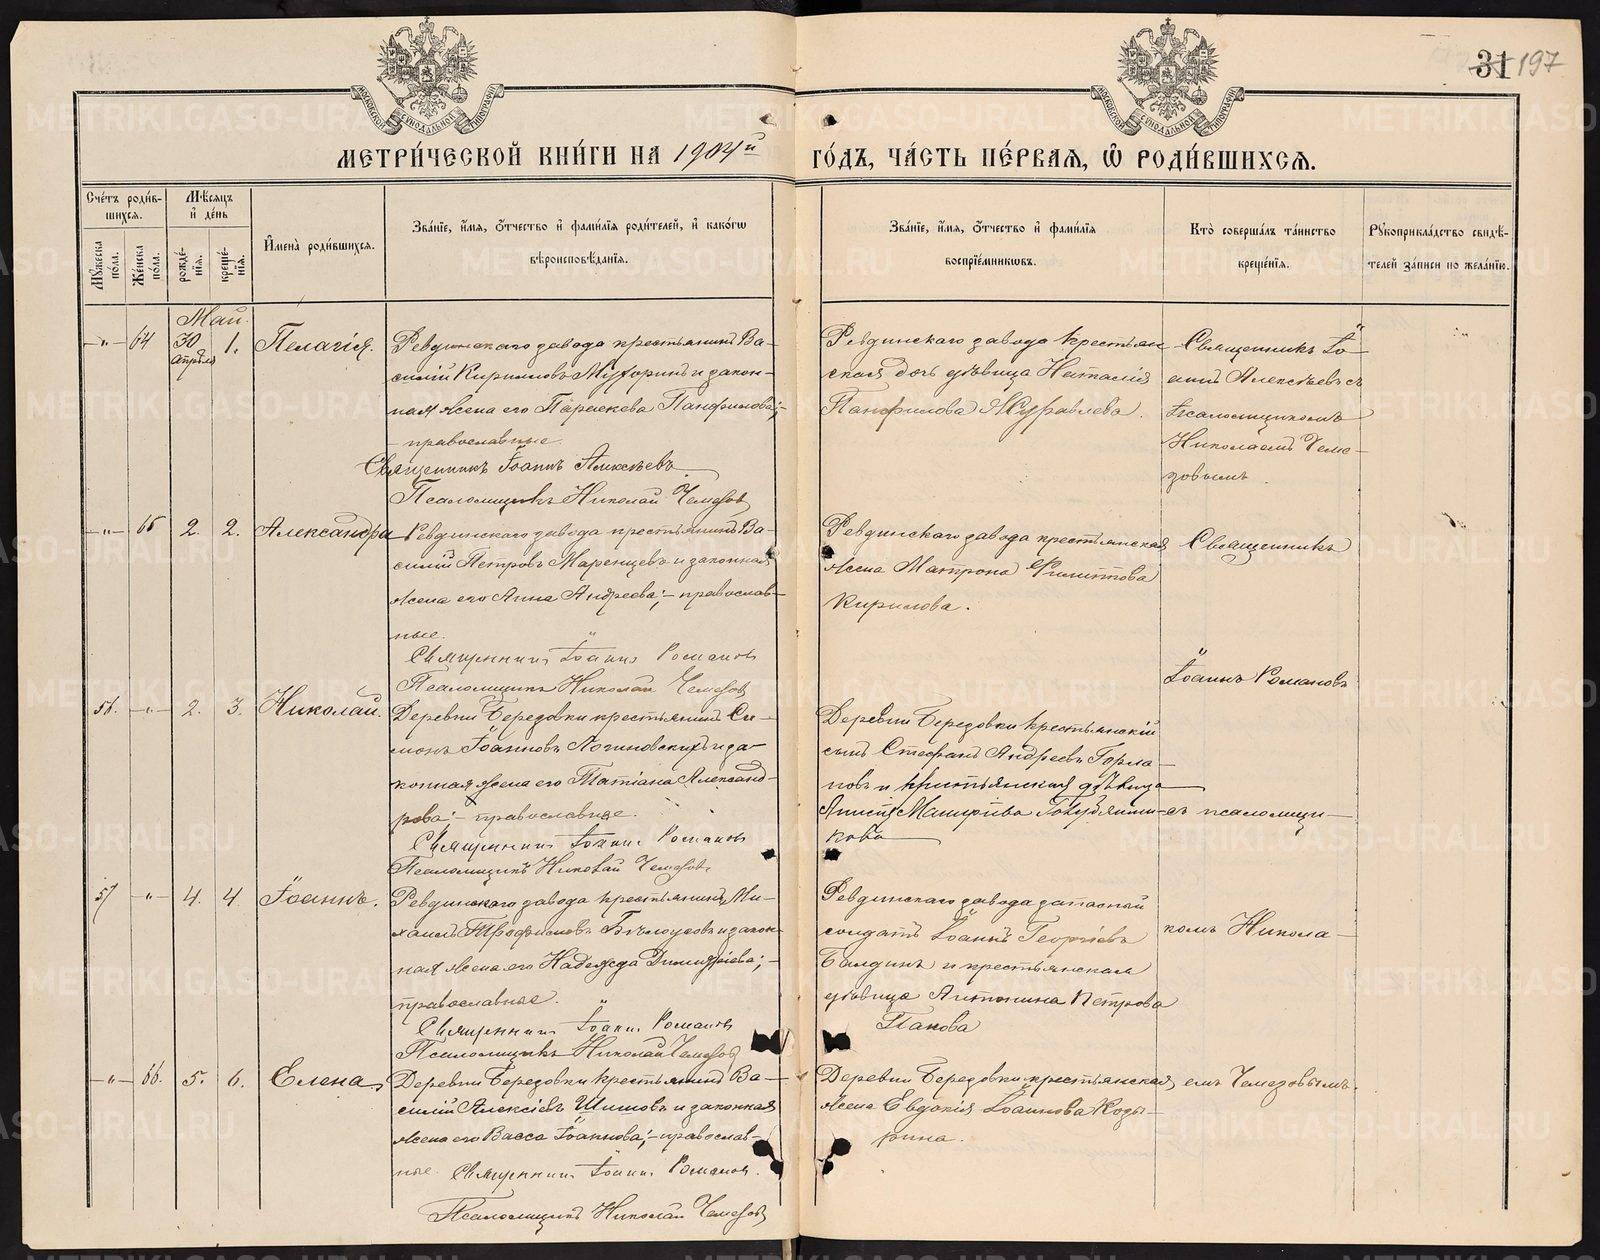 31 197
МЕТРИ́ЧЕСКОЙ КНИ́ГИ НА 1904й ГО́ДЪ, ЧА́СТЬ ПЕ́РВАЯ, Ѽ РОДИ́ВШИХСѦ.
Сче́тъ роди́в-
шихсѧ.
Мѣ́сѧцъ
и҆ де́нь
И҆мена̀ роди́вшихсѧ.
Зва́нїе, и҆́мѧ, ѻ҆́тчество и҆ фами́лїѧ роди́телей, и҆ како́гѡ
вѣроисповѣ́данїѧ.
Зва́нїе, и҆́мѧ, ѻ҆́тчество и҆ фами́лїѧ
воспрїе́мникѡвъ.
Кто̀ соверша́лъ та́инство
креще́нїѧ.
Рꙋкоприкла́дство свидѣ́-
телей за́писи по жела́нїю.
Мꙋ́жеска
по́ла.
Же́нска
по́ла.
рожде́-
нїѧ.
креще́-
нїѧ.
Май.
-"- 64 30 апрѣля 1. Пелагія.
Ревдинскаго завода крестьянинъ Ва-
силій Кириловъ Мухоринъ и закон-
ная жена его Параскева Панфилова;-
- православные.
Священникъ Іоаннъ Алексѣевъ
Псаломщикъ Николай Чемезовъ
Ревдинскаго завода крестьян-
ская дочь дѣвица Наталія
Панфилова Журавлева.
Священникъ Іо-
аннъ Алексѣевъ съ
псаломщикомъ
Николаемъ Чеме-
зовымъ.
-"- 65 2. 2. Александра
Ревдинскаго завода крестьянинъ Ва-
силій Петровъ Маренцевъ и законная
жена его Анна Андреева;- православ-
ные.
Священникъ Іоаннъ Романовъ
Псаломщикъ Николай Чемезовъ
Ревдинскаго завода крестьянская
жена Матрона Филиппова
Кирилова.
Священникъ
56. -"- 2. 3. Николай.
Деревни Бередовки крестьянинъ Си-
монъ Іоанновъ Логиновскихъ и за-
конная жена его Татіана Александ-
рова;- православные.
Священникъ Іоаннъ Романовъ
Псаломщикъ Николай Чемезовъ
Деревни Бередовки крестьянскій
сынъ Стефанъ Андреевъ Горла-
новъ и крестьянская дѣвица
кова
Іоаннъ Романовъ
съ псаломщи-
57 -"- 4. 4. Іоаннъ.
Ревдинскаго завода крестьянинъ Ми-
хаилъ Трофимовъ Бѣлоусовъ и закон-
ная жена его Надежда Димитріева;-
православные.
Священникъ Іоаннъ Романовъ
Псаломщикъ Николай Чемезовъ
Ревдинскаго завода запасный
солдатъ Іоаннъ Георгіевъ
Балдинъ и крестьянская
дѣвица Антонина Петрова
Панова
комъ Никола-
-"- 66. 5. 6. Елена
Деревни Бередовки крестьянинъ Ва-
силій Алексіевъ Шишовъ и законная
жена его Васса Іоаннова;- православ-
ные. Священникъ Іоаннъ Романовъ.
Псаломщикъ Николай Чемезовъ
Деревни Бередовки крестьянская
жена Евдокія Іоаннова Козы-
рина.
емъ Чемезовымъ.
METRIKI.GASO-URAL.RU